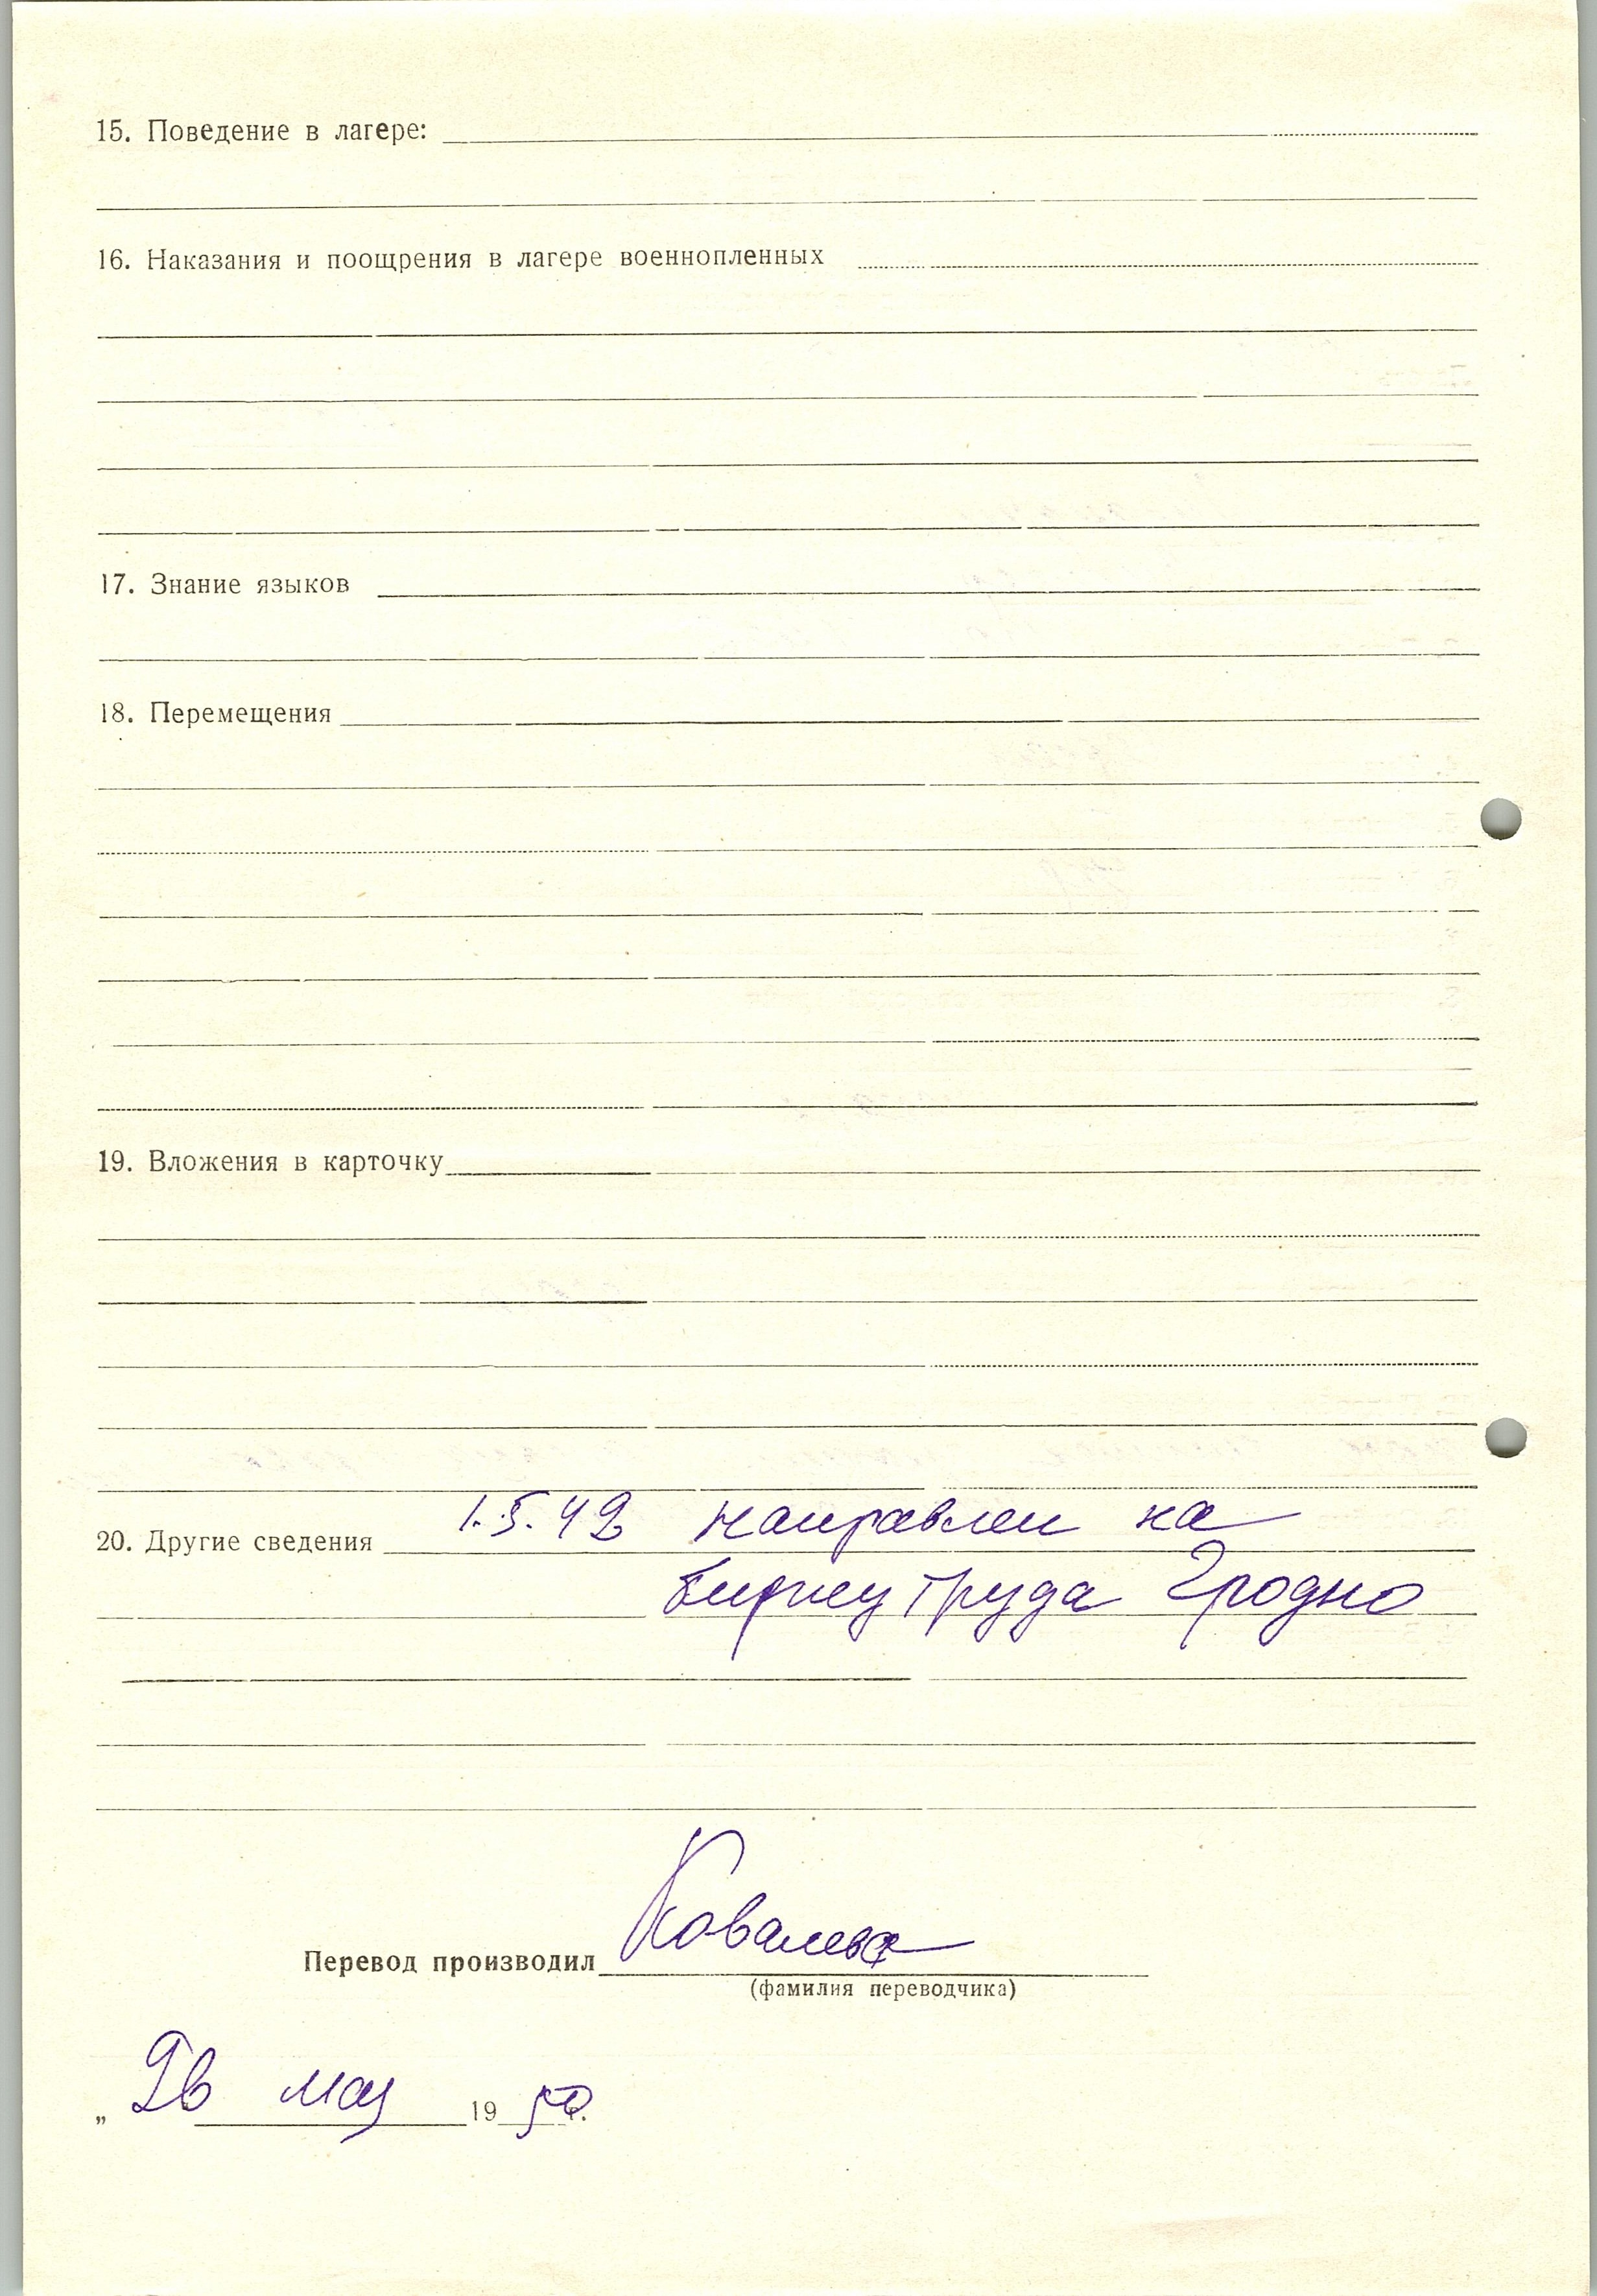 15. Поведение в лагере:
16. Наказания и поощрения в лагере военнопленных
17. Знание языков
18. Перемещения
19. Вложения в карточку
20. Другие сведения 1.5.42 направлен на
биржу труда Гродно
Перевод производил Ковалева
(фамилия переводчика)
„ 26 мая 1950 г.